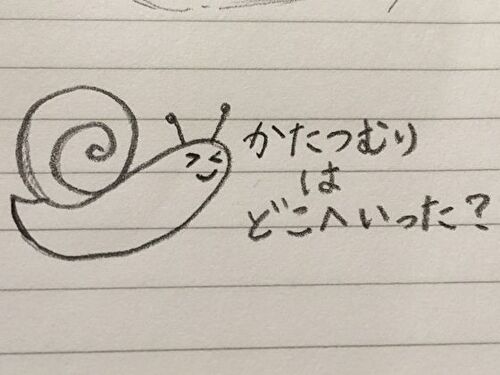 かたつむり
は
どこへいった?